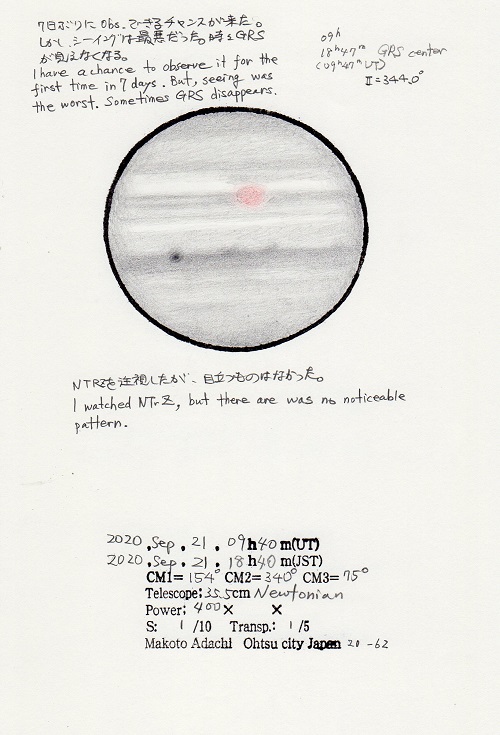 7日ぶりにobs.できるチャンスが来た。
しかし、シーイングは最悪だった。時々GRS
が見えなくなる。
I have a chance to observe it for the
first time in 7 days. But, seeing was
the worst. Sometimes GRS disappears.
09h
18h47m GRS center
(09h47m UT)
II=344.0°
NTrZを注視したが、目立つものはなかった。
I watched NTrZ, but there are was no noticeable
pattern.
2020, Sep. 21. 09h40m(UT)
2020, Sep. 21. 18h40m(JST)
CM1= 154° CM2= 340° CM3= 75°
Telescope: 35.5cm Newtonian
Power: 400× ×
S: 1 /10 Transp.: 1 /5
Makoto Adachi Ohtsu city Japan 20-62